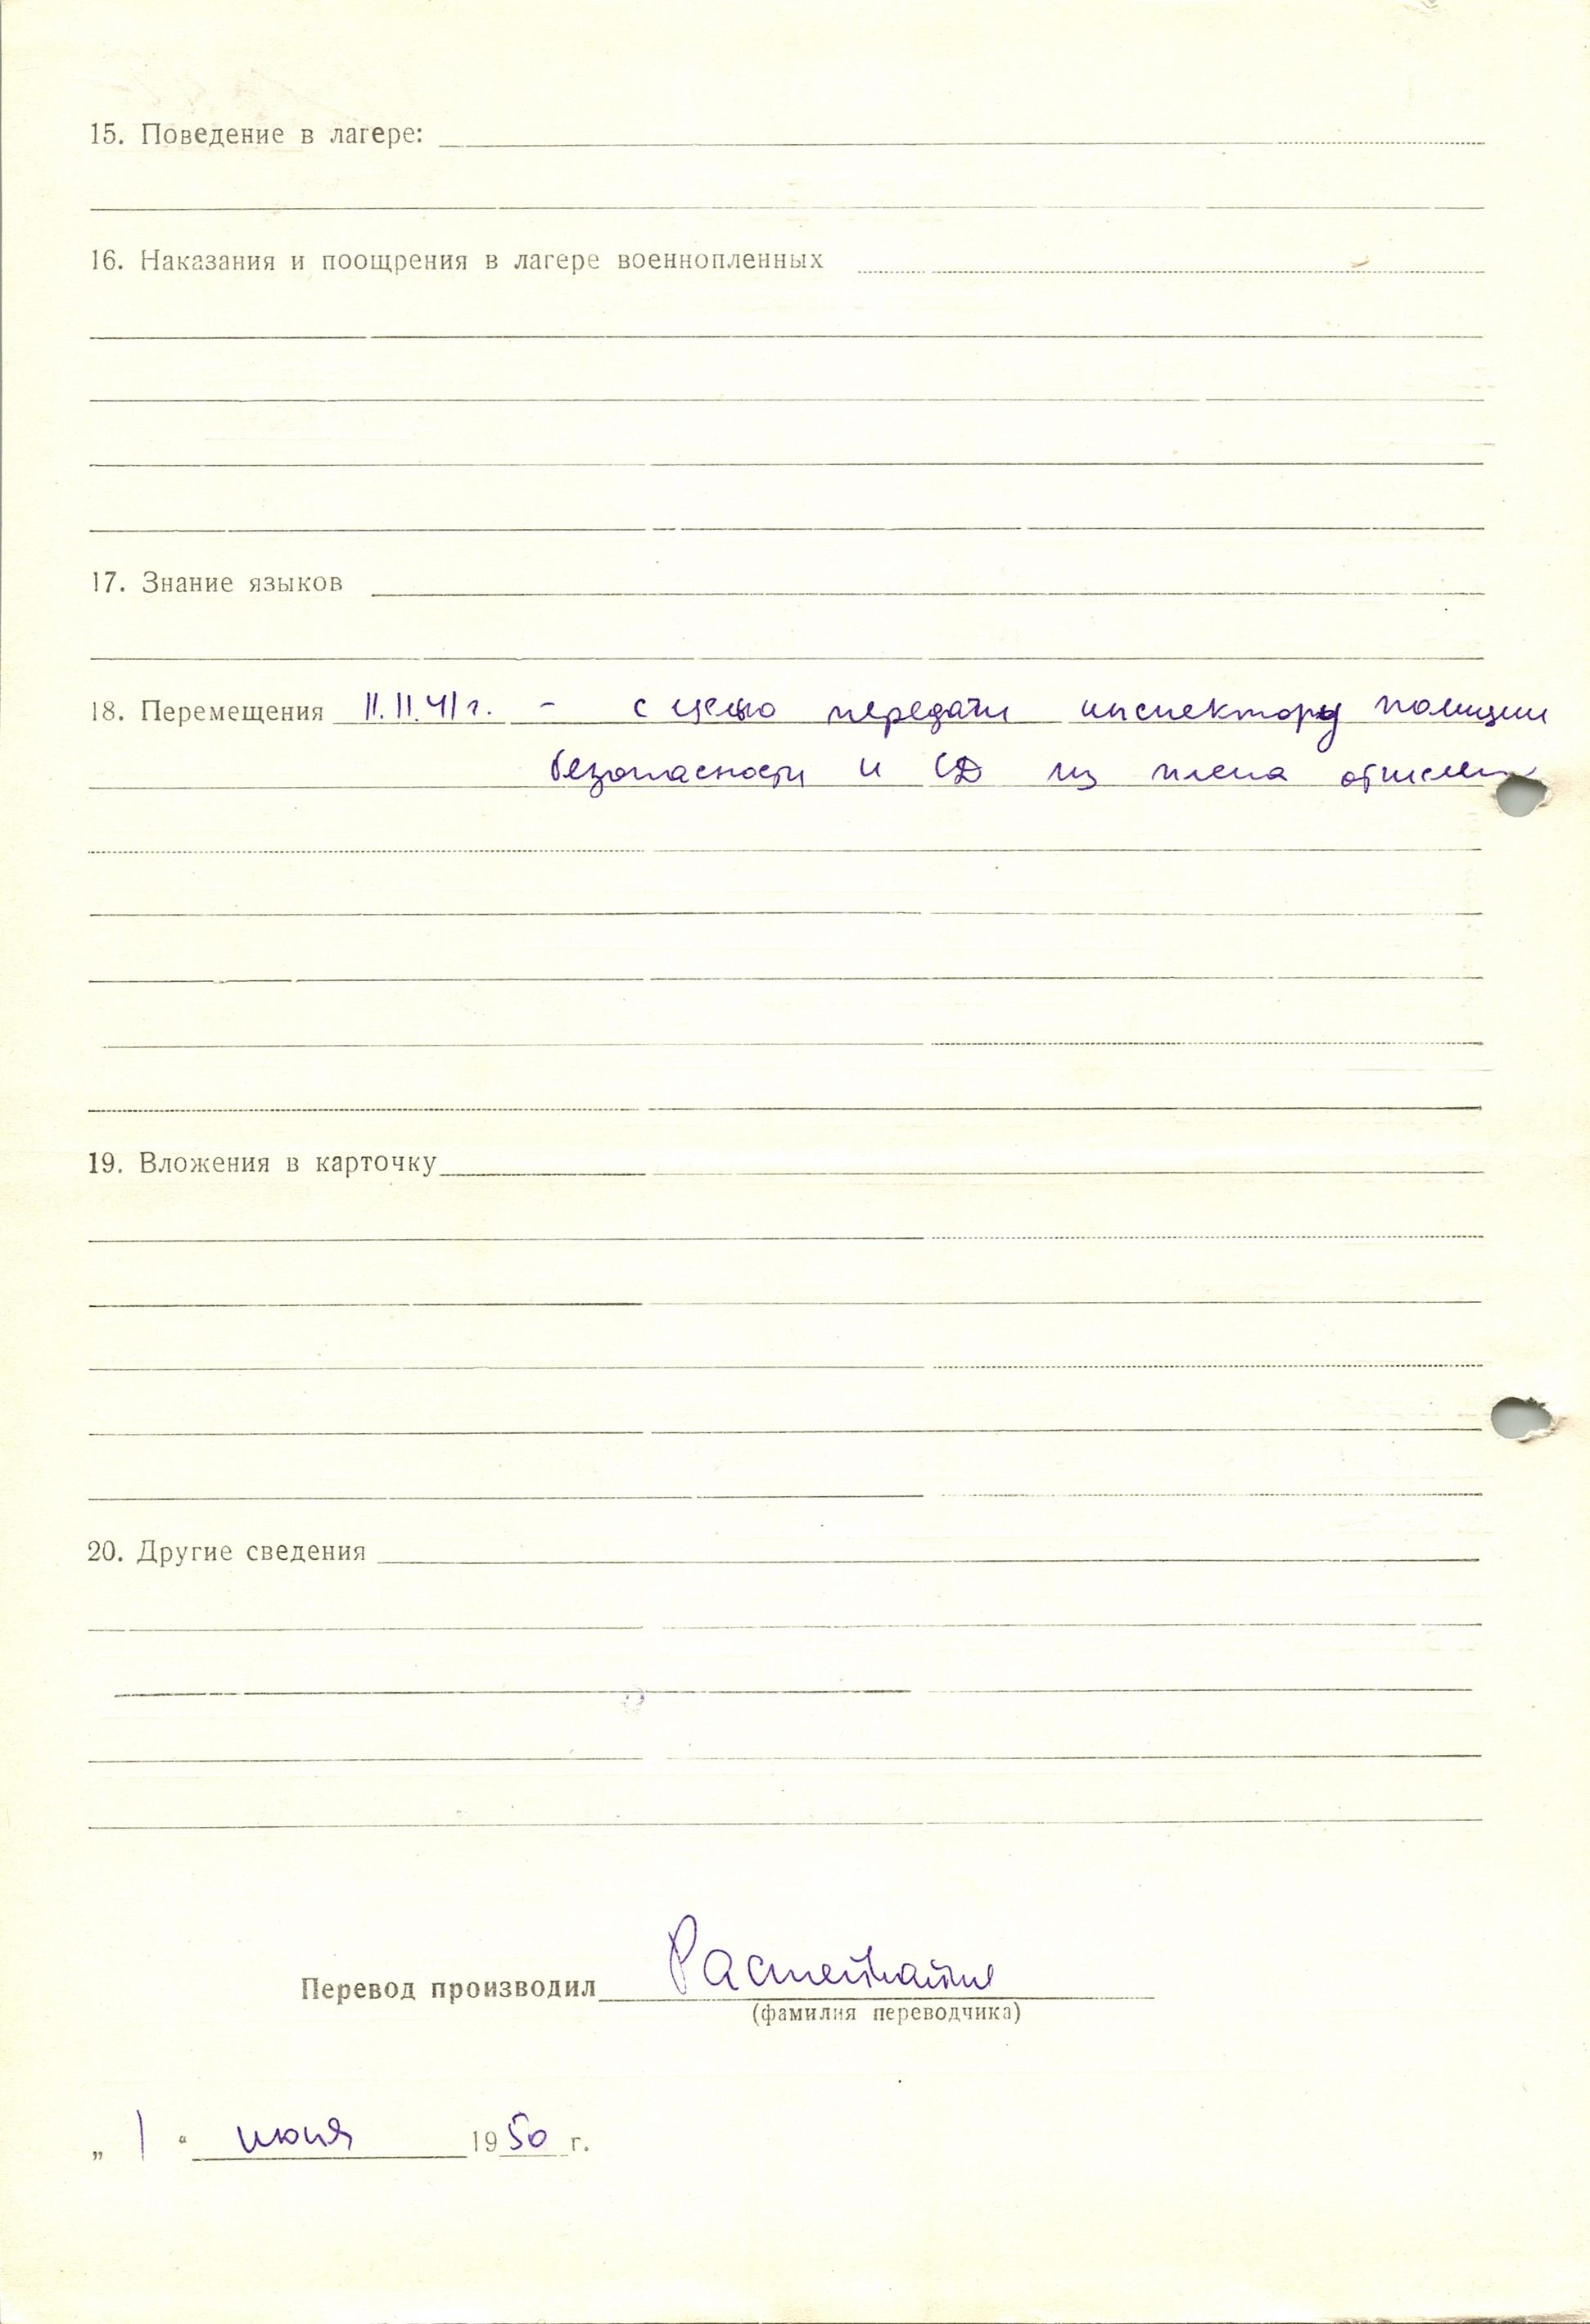 15. Поведение в лагере:
16. Наказания и поощрения в лагере военнопленных
17. Знание языков
18. Перемещения 11.11.41 г. - с целью передачи инспектору полиции
безопасности и СД из плена отпислен
19. Вложения в карточку
20. Другие сведения
Перевод производил
(фамилия переводчика)
„ 1 “ июня 1950 г.